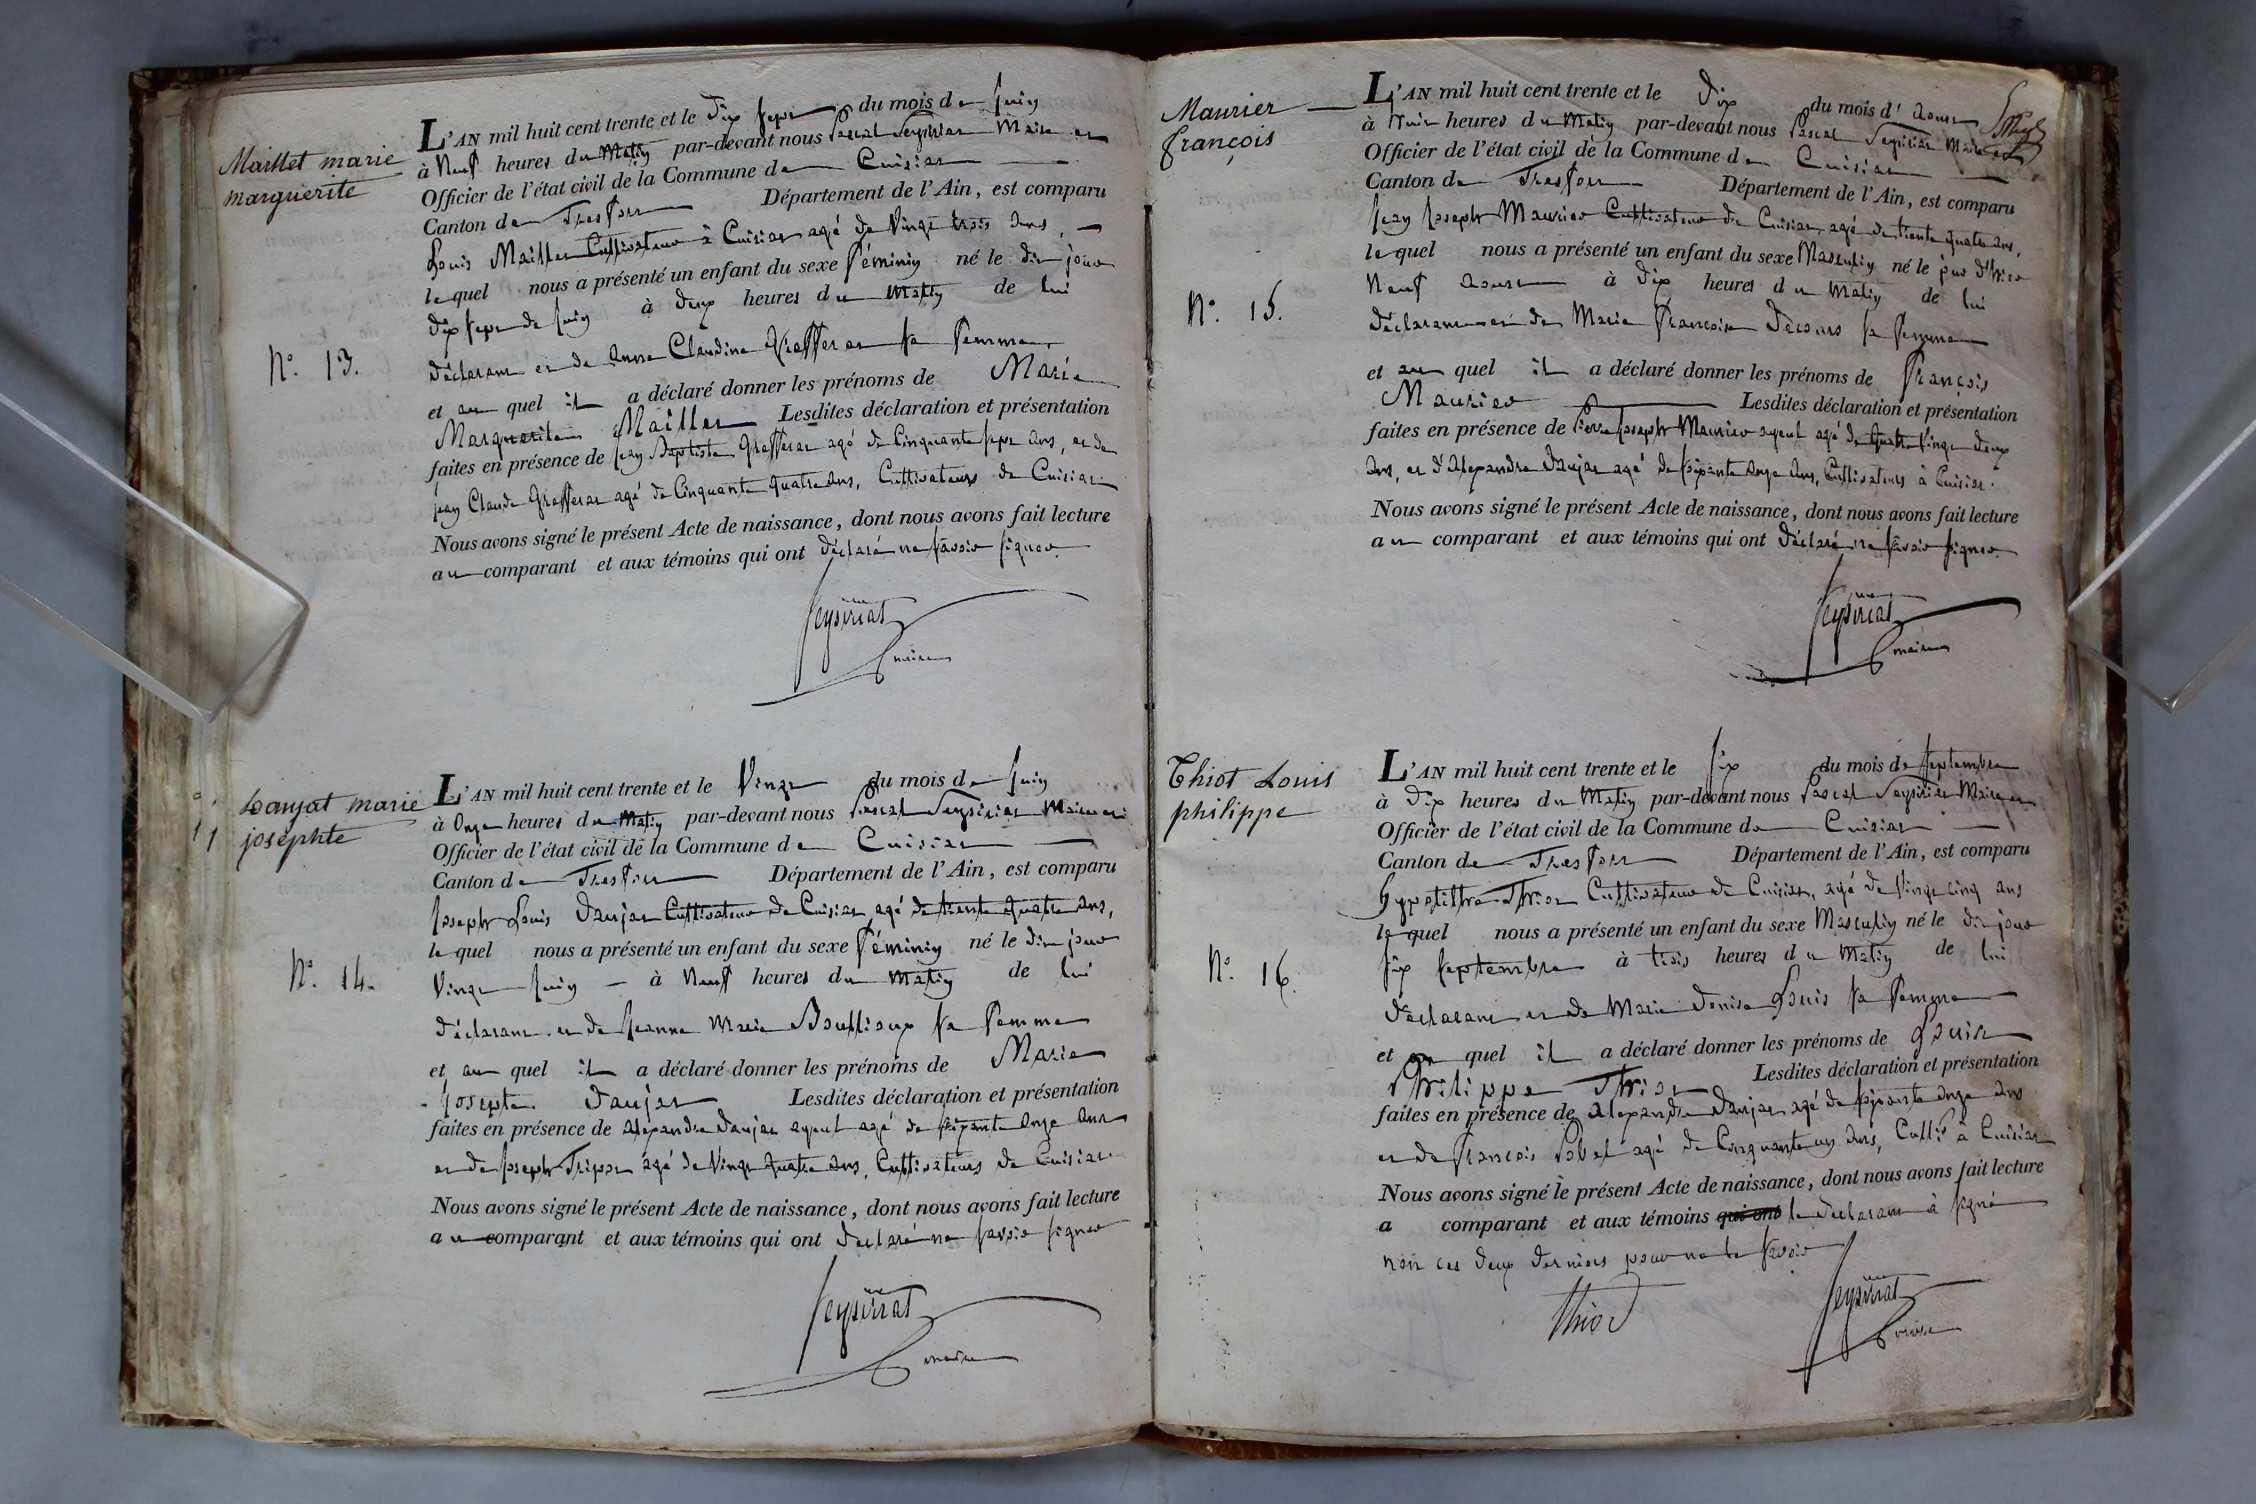 Maillet marie
marguerite
N.º 13.
L'AN mil huit cent trente et le Dix sept du mois de Juin
à Neuf heures du Matin par-devant nous Pascal Seysiriat Maire et
Officier de l'état civil de la Commune de Cuisiat
Canton de Treffort Département de l'Ain, est comparu
Louis Maillet Cultivateur à Cuisiat agé de Vingt trois ans,
lequel nous a présenté un enfant du sexe féminin né le dit jour
dix sept de Juin à deux heures du matin de lui
déclarant et de Anne Claudine Grefferat sa femme
et au quel il a déclaré donner les prénoms de Marie
Marguerite Maillet Lesdites déclaration et présentation
faites en présence de Jean Baptiste Grefferat agé de Cinquante sept ans, et de
Jean Claude Grefferat agé de Cinquante quatre ans, Cultivateurs de Cuisiat.
Nous avons signé le présent Acte de naissance, dont nous avons fait lecture
au comparant et aux témoins qui ont déclaré ne savoir signer.
Seysiriat
maire
Danjat marie
josephte
N.º 14.
L'AN mil huit cent trente et le Vingt du mois de Juin
à Onze heures du Matin par-devant nous Pascal Seysiriat Maire et
Officier de l'état civil de la Commune de Cuisiat
Canton de Treffort Département de l'Ain, est comparu
Joseph Louis Danjat Cultivateur de Cuisiat agé de trente quatre ans,
lequel nous a présenté un enfant du sexe féminin né le dit jour
Vingt Juin à Neuf heures du matin de lui
déclarant et de Jeanne Marie Boullioux sa femme
et au quel il a déclaré donner les prénoms de Marie
Josepte Danjat Lesdites déclaration et présentation
faites en présence de Alexandre Danjat ayeul agé de soixante onze ans
et de Joseph Tripoz agé de Vingt quatre ans, Cultivateurs de Cuisiat.
Nous avons signé le présent Acte de naissance, dont nous avons fait lecture
au comparant et aux témoins qui ont déclaré ne savoir signer
Seysiriat
maire
Maurier
françois
N.º 15.
L'AN mil huit cent trente et le Dix du mois d'Aout
à huit heures du Matin par-devant nous Pascal Seysiriat Maire et
Officier de l'état civil de la Commune de Cuisiat
Canton de Treffort Département de l'Ain, est comparu
Jean Joseph Maurier Cultivateur de Cuisiat agé de trente quatre ans,
lequel nous a présenté un enfant du sexe Masculin né le jour d'hier
Neuf Aout à dix heures du matin de lui
déclarant et de Marie Françoise Decours sa femme
et au quel il a déclaré donner les prénoms de François
Maurier Lesdites déclaration et présentation
faites en présence de Pierre Joseph Maurier ayeul agé de Quatre Vingt deux
ans, et d'Alexandre Danjat agé de soixante onze ans, Cultivateurs à Cuisiat.
Nous avons signé le présent Acte de naissance, dont nous avons fait lecture
au comparant et aux témoins qui ont déclaré ne savoir signer
Seysiriat
maire
Thiot Louis
philippe
N.º 16.
L'AN mil huit cent trente et le six du mois de septembre
à Dix heures du Matin par-devant nous Pascal Seysiriat Maire et
Officier de l'état civil de la Commune de Cuisiat
Canton de Treffort Département de l'Ain, est comparu
Hypolithe Thiot Cultivateur de Cuisiat, agé de Vingt cinq ans
lequel nous a présenté un enfant du sexe Masculin né le dit jour
six septembre à trois heures du matin de lui
déclarant et de Marie Denise Louis sa femme
et au quel il a déclaré donner les prénoms de Louis
Philippe Thiot Lesdites déclaration et présentation
faites en présence de Alexandre Danjat agé de soixante onze ans
et de François Pobel agé de Cinquante un ans, Cultirs à Cuisiat
Nous avons signé le présent Acte de naissance, dont nous avons fait lecture
a comparant et aux témoins qui ont le déclarant à signé
non ces deux derniers pour ne le savoir
Thiot
Seysiriat
maire